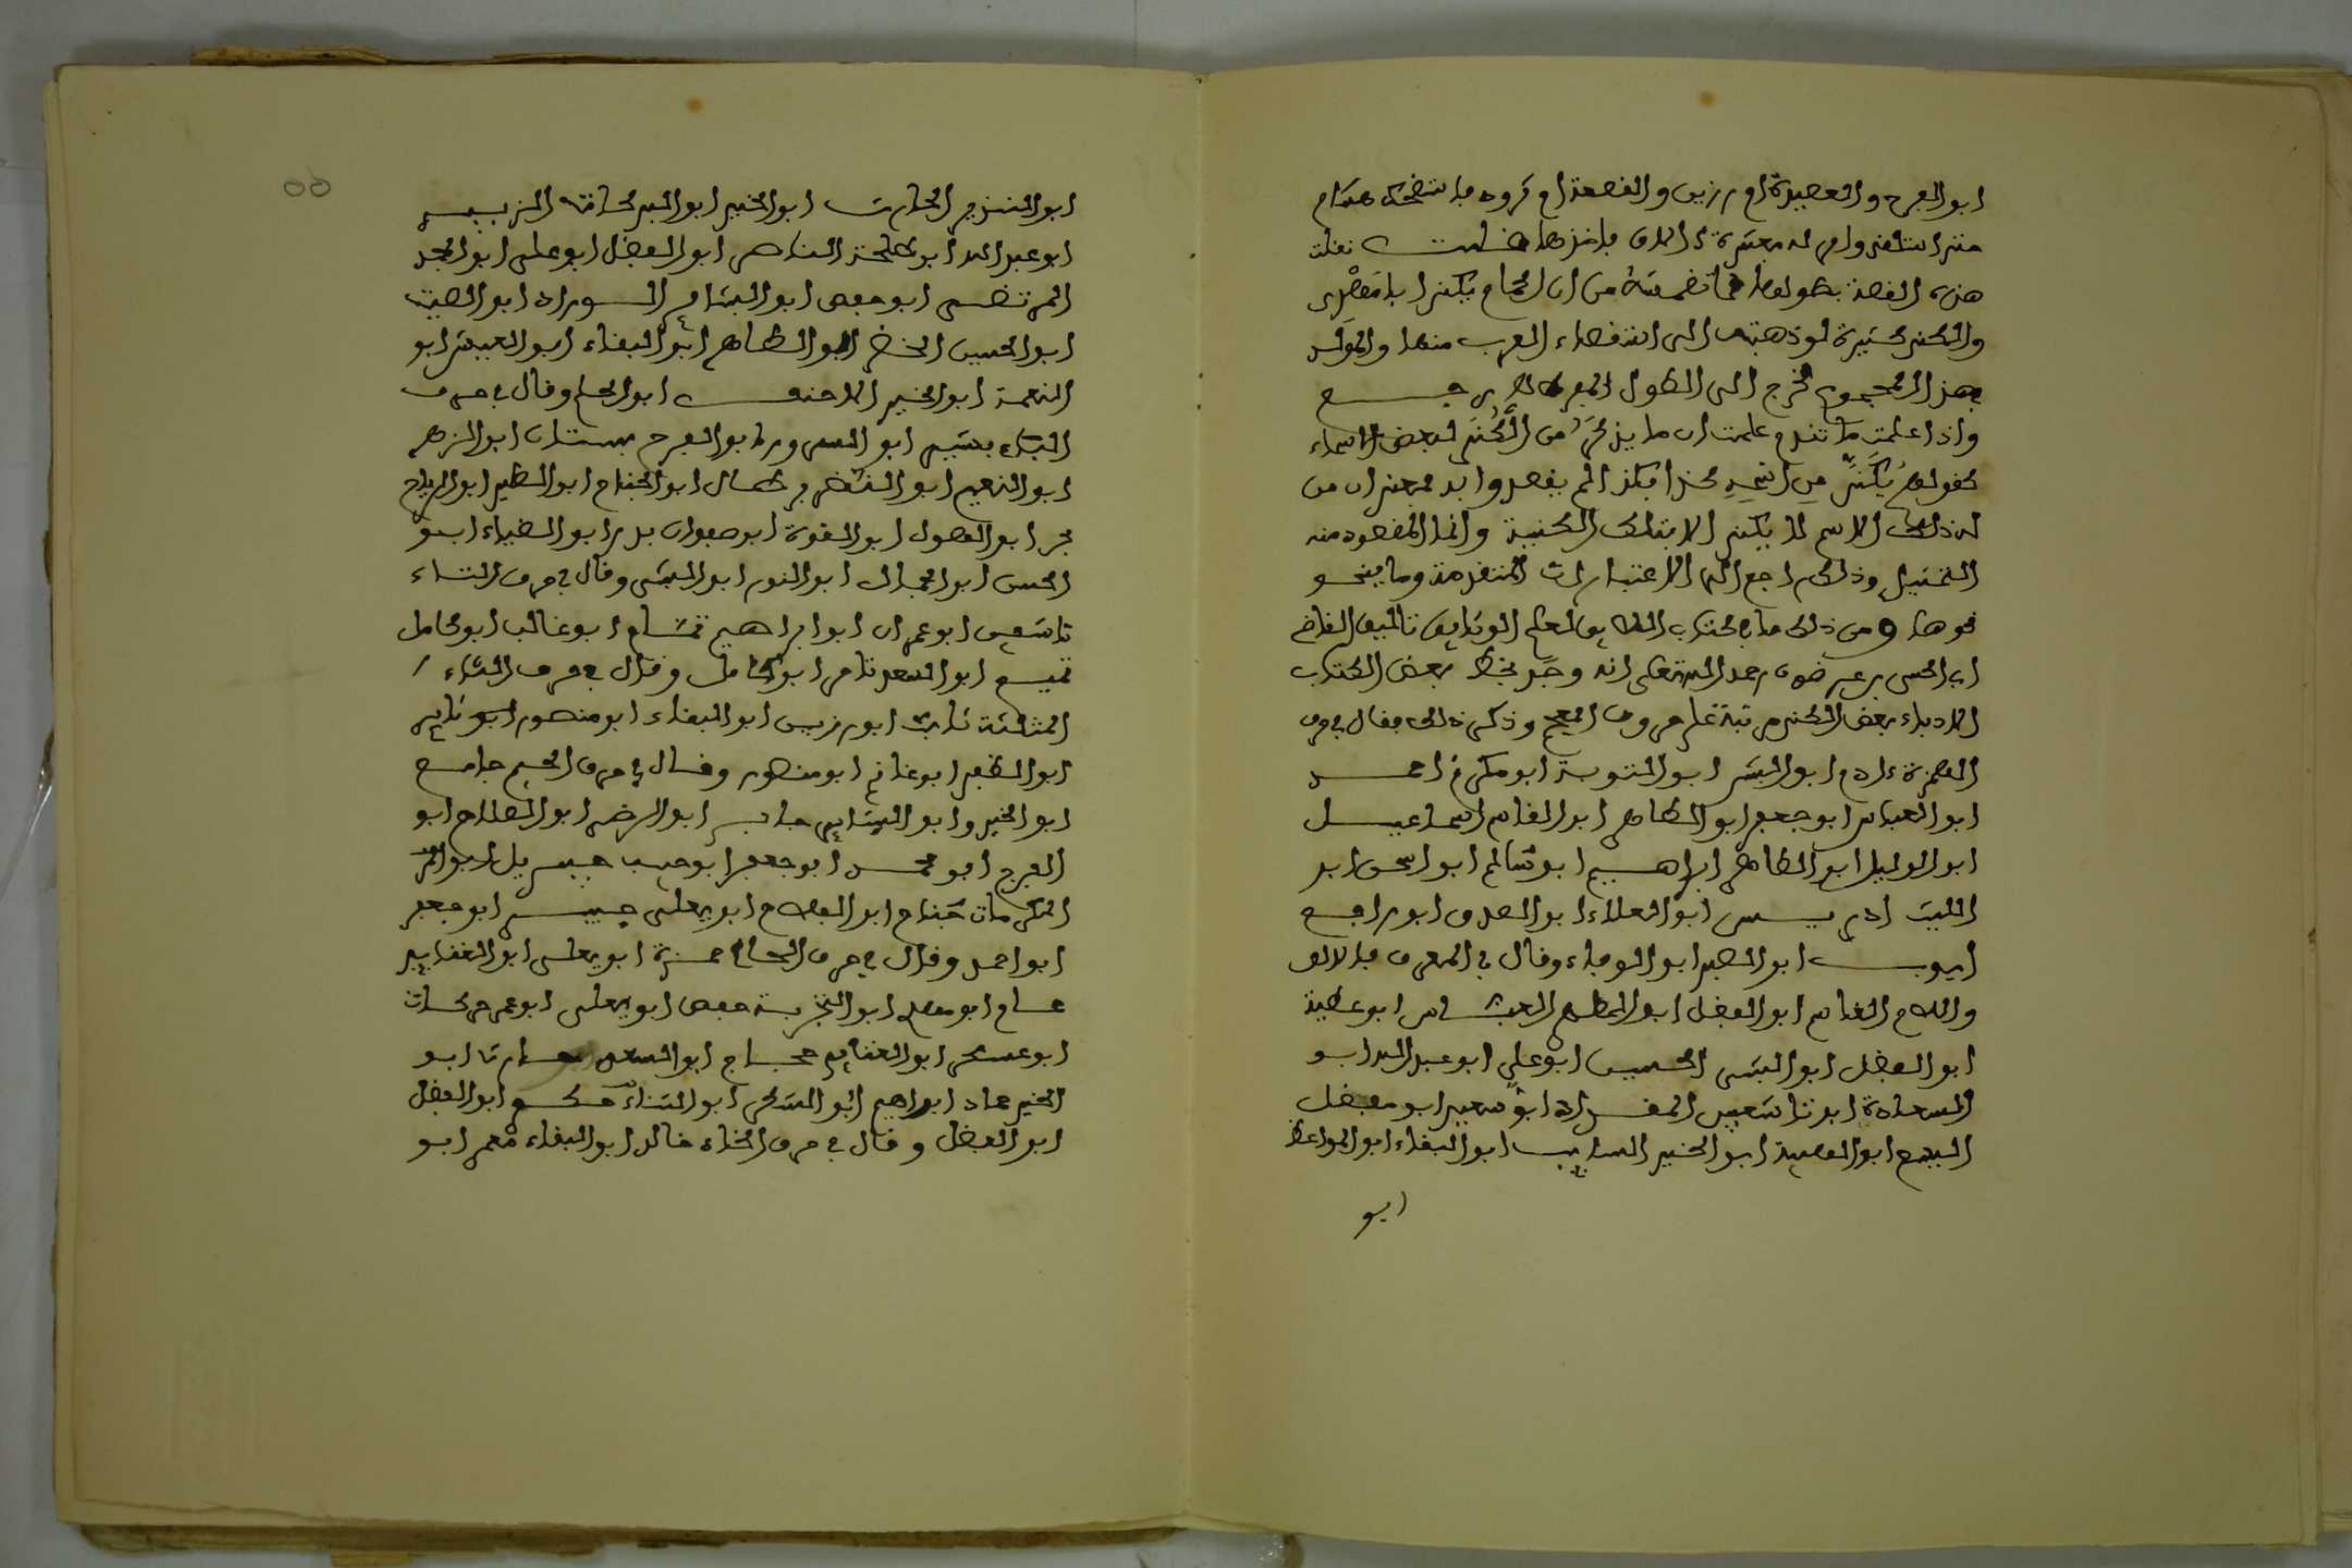 ابو الفرج والعصيدة ام رزين والقصعة ام فروه فاستضحك هشام
حتى استلقى وامر له بعشرة ءالاف فاخذها قلت نقلت
هذه القصة بطولها لما تضمنته من ان الحمام يكنى ابا
والكنى كثيرة لو ذهبت الى استقصاء العرب منها والمولد
بهذا المجموع لخرج الى الطول
واذا علمت ما تقدم علمت ان ما يذكر من الكنى لبعض الاسماء
كقولهم يكنى من اسمه كذا بكذا لم يقصدوا به
له ذلك الاسم لا يكنى الا بتلك الكنية وانما المقصود منه
التمثيل وذلك راجع الى الاعتبارات المتقدمة وما ينحو
نحوها ومن ذلك ما في كتاب اللايق لمعلم الوثايق تاليف القاضي
ابي الحسن بن عبر ضون رحمه الله تعلى انه وجد بخط بعض الكتاب
الادباء بعض الكنى مرتبة على حروف المعجم وذكر ذلك فقال في حرف
الهمزة ءادم ابو البشر ابو التوبة ابو مكرم احمد
ابو العباس ابو جعفر ابو الطاهر ابو القاسم اسماعيل
ابو الوليد ابو الطاهر ابراهيم ابو سالم ابو اسحق ابو
الليث ادريس ابو العلاء ابو الصدق ابو رافع
ايوب ابو الصبر ابو الوفاء وقال في المعرف بالالف
واللام القاسم ابو الفضل ابو المطهر العباس ابو عطية
ابو الفضل ابو البشر الحسين ابو علي ابو عبد الله ابو
السعادة ابو تاشعين المقداد ابو سعيد ابو مفضل
اليسع ابو العصمة ابو الخير السايب ابو البقاء ابو المواعظ
ابو
ابو المنذر الحارث ابو الخير ابو البركات الزبير
ابو عبد الله ابو طلحة الناصر ابو الفضل ابو علي ابو المجد
المرتضى ابو حفص ابو البسام السوراه ابو الصيت
ابو الحسين الخضر ابو الطاهر ابو البقاء ابو العيش ابو
النعمة ابو الخير الاحنف ابو الحلم وقال في حرف
الباء بشير ابو السرور ابو الفرج بستان ابو الزهر
ابو النعيم ابو النضر ابو الجناح ابو الطير ابو الرياح
بحر ابو الهول ابو القوة ابو صفوان بدر ابو الضياء ابو
الحسن ابو الجمال ابو النور ابو البشر وقال في حرف التاء
تاشعين ابو عمران ابو ابراهيم تمام ابو غالب ابو كامل
تميم ابو السعد تامر ابو الكامل وقال في حرف الثاء
المثلثة ثابت ابو رزين ابو البقاء ابو منصور ابو ثاير
ابو الظفر ابو غانم ابو منصور وقال في حرف الجيم جامع
ابو الخير وابو البشاير جابر ابو الرضى ابو الصلاح ابو
الفرج ابو محمد ابو جعفر ابو حبيب جبريل ابو
الكرمات جناح ابو الفلاح ابو يعلى جبير ابو جعفر
ابو احمد وقال في حرف الحاء حمزة ابو يعلى ابو الغنايم
حسام ابو مهند ابو التجربة حفص ابو يعلى ابو عمر حركات
ابو عسكر ابو الغنايم حجاج ابو السعد حارثا ابو
الخير حماد ابراهيم ابو الشكر ابو الثناء حكم ابو الفضل
ابو الفضل وقال في حرف الخاء خالد ابو البقاء معمر ابو